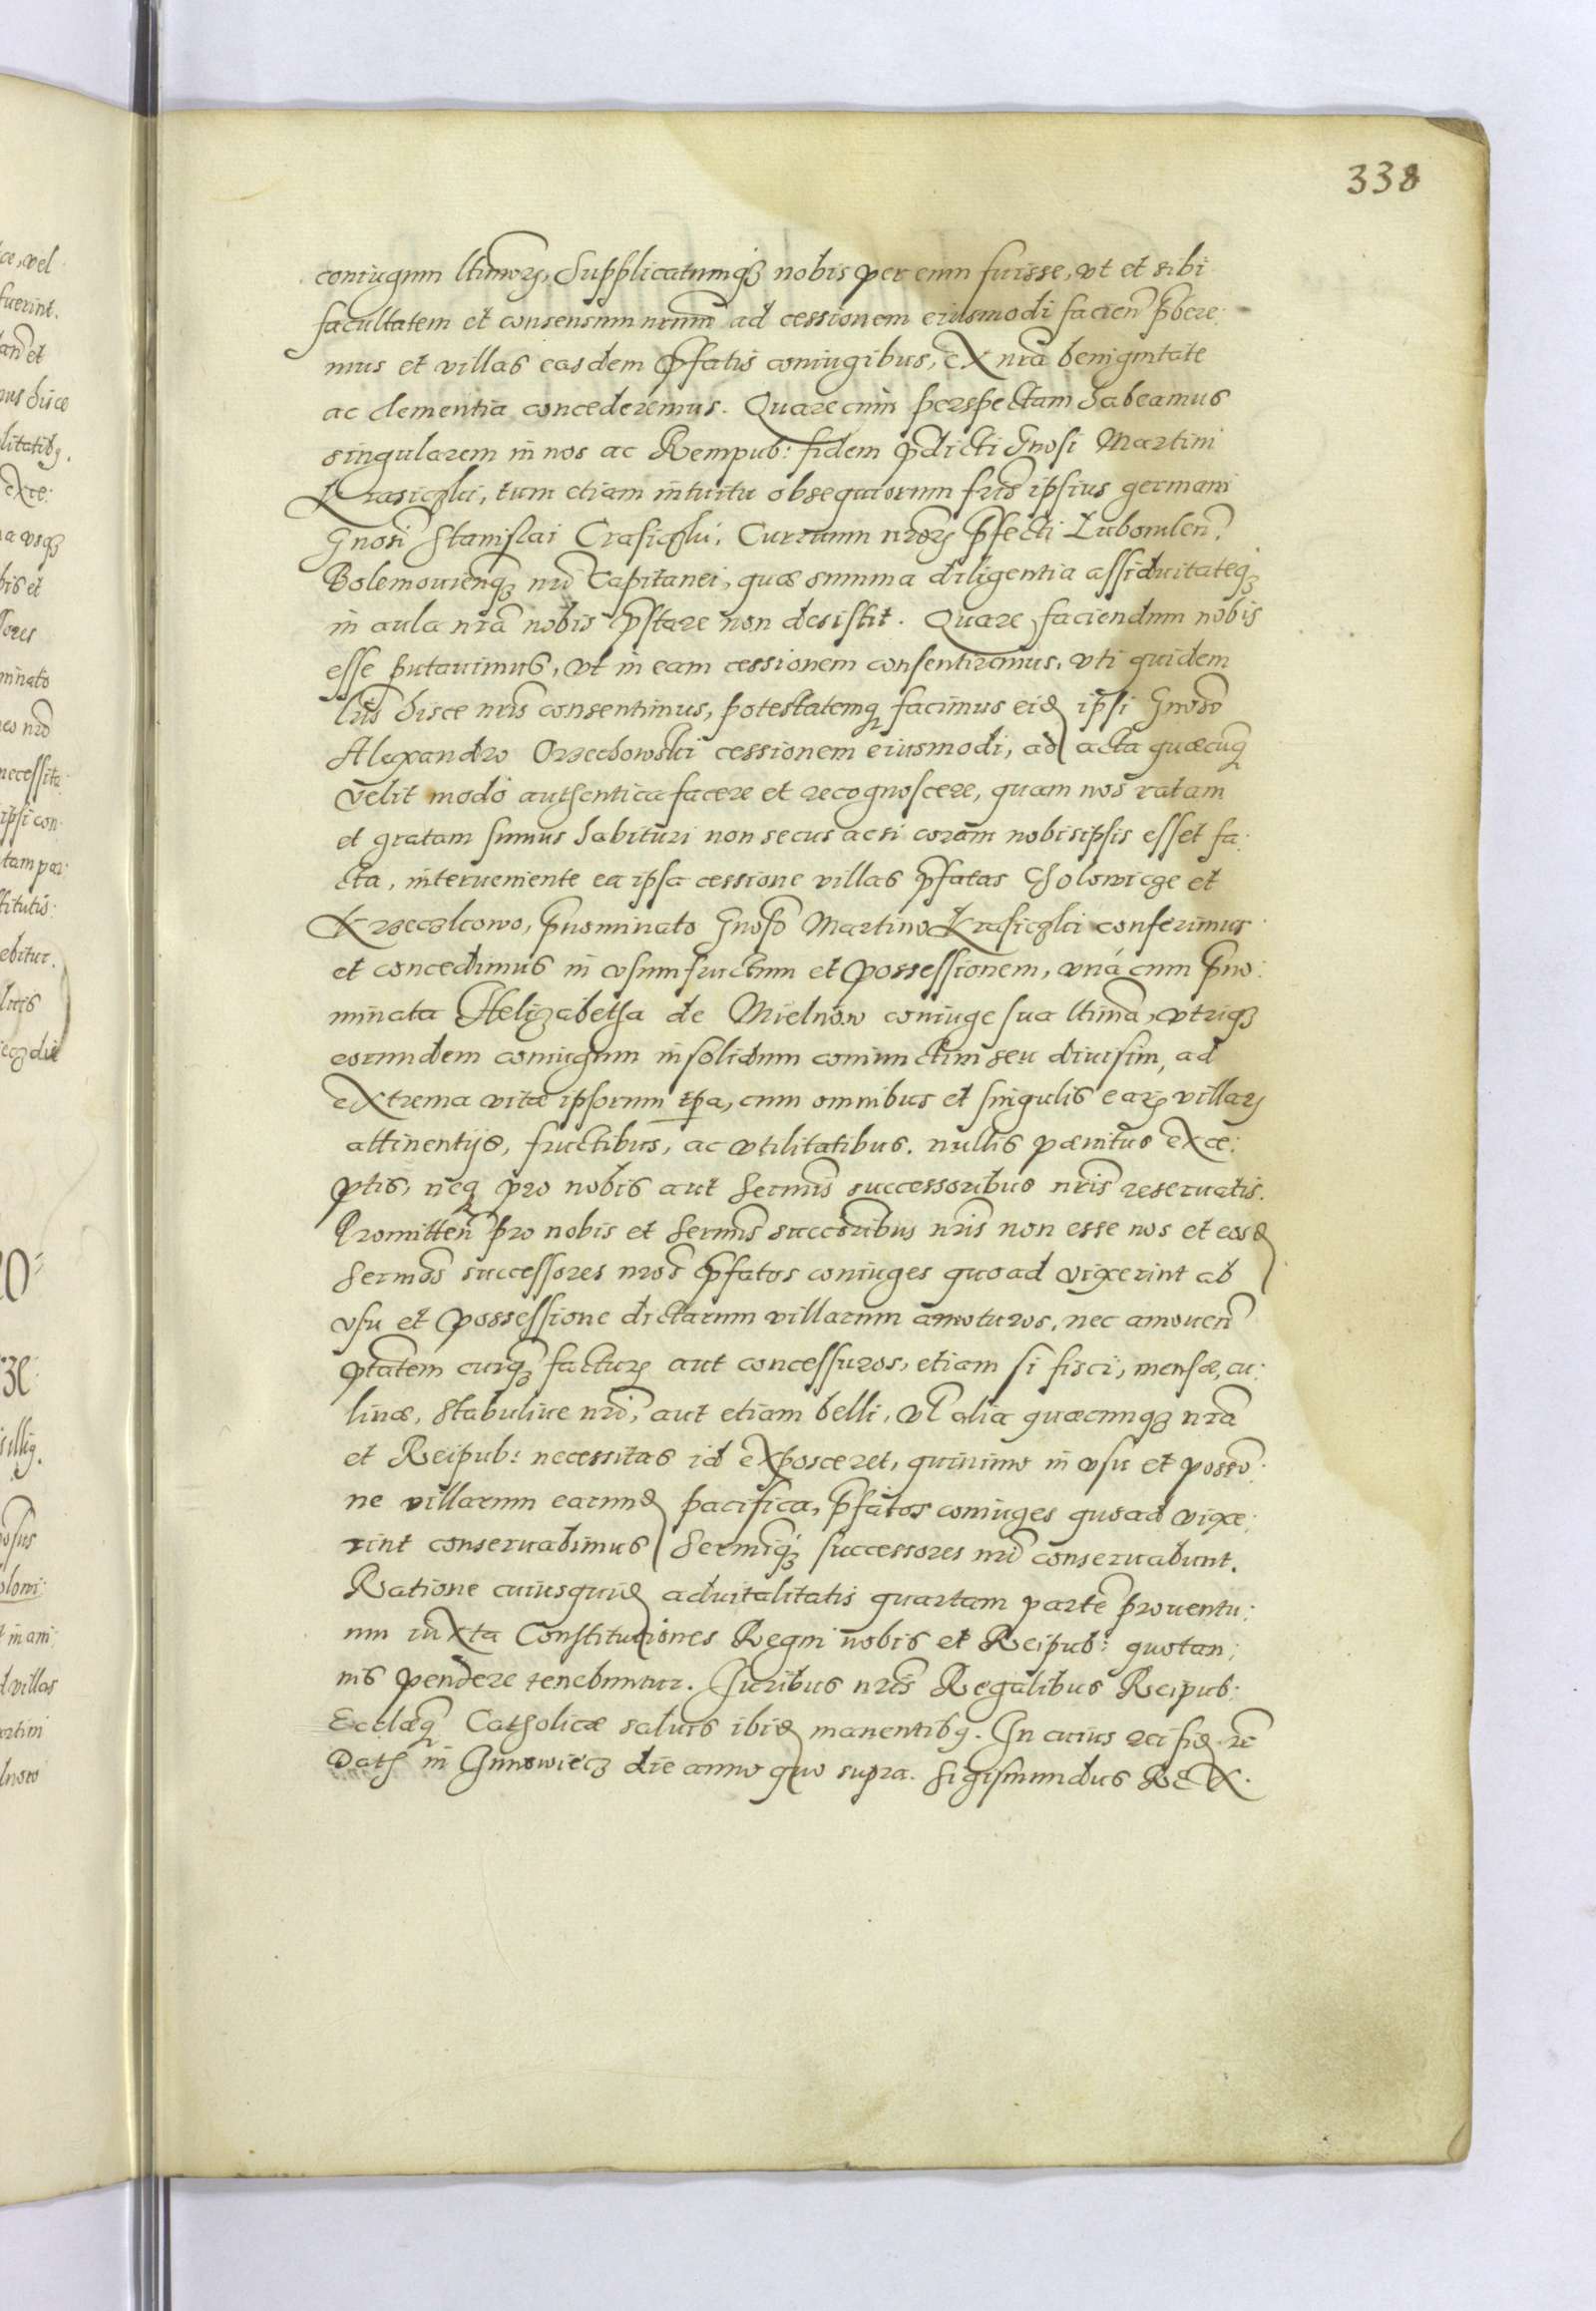 338
coniugum ltimorȝ, Supplicatumqȝ nobis per eum fuisse, vt et sibi
facultatem et consensum nrum ad cessionem eiusmodi facien p̃bere:
mus et villas easdem p̃fatis coniugibus, ex nrã benignitate
ac clementia concederemus. Quare cum perspectam habeamus
singularem in nos ac Rempub: fidem p̃dicti Gnosi Martini
Krasiczki, tum etiam intuitu obsequiorum fris ipsius germani
Gnosi Stanislai Crasiczki, Curruum nrorȝ p̃fecti Lubomlen̄.
Bolemouienqȝ nri Capitanei, quæ summa diligentia assiduitateqȝ
in aula nrã nobis p̃stare non desistit. Quare faciendum nobis
esse putauimus, vt in eam cessionem consentiremus, vti quidem
lris hisce nris consentimus, potestatemqȝ facimus eidȝ ipsi Gnoso
Alexandro Orzechowski cessionem eiusmodi, ad acta quæcuqȝ
velit modo authentica facere et recognoscere, quam nos ratam
et gratam sumus habituri non secus ac si coram nobis ipsis esset fa:
cta, interueniente ea ipsa cessione villas p̃fatas Cholowicze et
Krzeczkowo, p̃nominato Gnoso Martino Krasiczki conferimus
et concedimus in vsumfructum et possessionem, vná cum p̃no:
minata Helizabetha de Mielnow coniuge sua ltima, vtriqȝ
eorundem coniugum insolidum coniunctim seu diuisim, ad
extrema vitæ ipsorum tp̃a, cum omnibus et singulis earȝ villarȝ
attinentijs, fructibus, ac vtilitatibus. nullis pænitus exce:
ptis, neqȝ pro nobis aut Sermis successoribus nris reseruatis.
Promitten̄ pro nobis et Sermis succoribus nris non esse nos et eosdȝ
Sermos successores nros p̃fatos coniuges quoad vixerint ab
vsu et possessione dictarum villarum amoturos, nec amouen̄
ptatem cuiqȝ facturȝ aut concessuros, etiam si fisci, mensæ, cu:
linæ, stabuliue nri, aut etiam belli, vl alia quæcunqȝ nrã
et Reipub: necessitas id exposceret, quinimo in vsu et possio:
ne villarum earundȝ pacifica, p̃fatos coniuges quoad vixe:
rint conseruabimus Sermiqȝ successores nri conseruabunt.
Ratione cuiusquidȝ aduitalitatis quartam partẽ prouentu:
um iuxta Constitutiones Regni nobis et Reipub: quotan:
nis pendere tenebuntur. Iuribus nris Regalibus Reipub:
Ecclæqȝ Catholicæ saluis ibidȝ manentibȝ. In cuius rei fidȝ rc̃
Dath in Gnnowiecz die anno quo supra. Sigismundus REX.